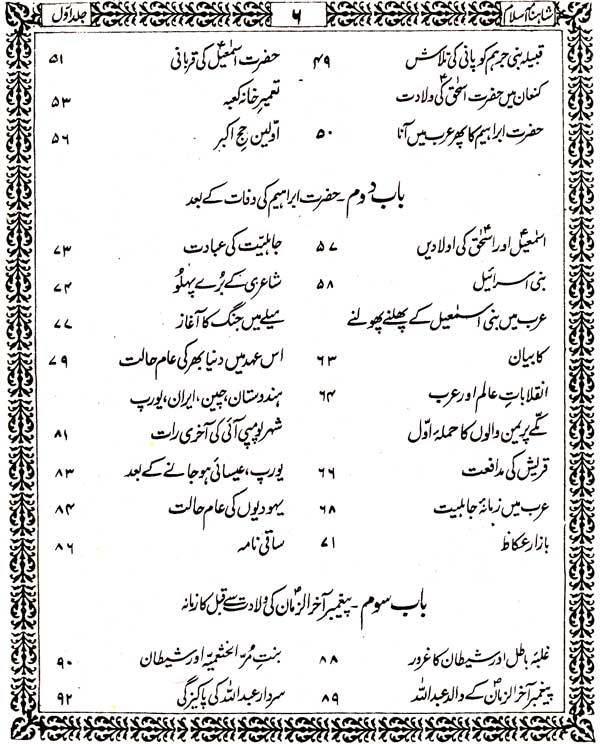 شاہنامۂ اسلام ۶ جلد اوّل
قبیلہ بنی جرہم کو پانی کی تلاش ۴۹
کنعان میں حضرت اسحٰقؑ کی ولادت
حضرت ابراہیم کا پھر عرب میں آنا ۵۰
حضرت اسمٰعیلؑ کی قربانی ۵۱
تعمیرِ خانہ کعبہ ۵۳
اوّلین حجِ اکبر ۵۶
باب دوم - حضرت ابراہیم کی وفات کے بعد
اسمٰعیلؑ اور اسحٰقؑ کی اولادیں ۵۷
بنی اسرائیل ۵۸
عرب میں بنی اسمٰعیل کے پھلنے پھولنے
کا بیان ۶۳
انقلاباتِ عالم اور عرب ۶۴
مکّے پر یمن والوں کا حملۂ اوّل
قریش کی مدافعت ۶۶
عرب میں زمانۂ جاہلیت ۶۸
بازارِ عکاظ ۷۱
جاہلیّت کی عبادت ۷۳
شاعری کے بُرے پہلو ۷۴
میلے میں جنگ کا آغاز ۷۷
اس عہد میں دنیا بھر کی عام حالت ۷۹
ہندوستان، چین، ایران، یورپ
شہر پومپی آئی کی آخری رات ۸۱
یورپ، عیسائی ہو جانے کے بعد ۸۳
یہودیوں کی عام حالت ۸۴
ساقی نامہ ۸۶
باب سوم - پیغمبر آخر الزمانؐ کی ولادت سے قبل کا زمانہ
غلبۂ باطل اور شیطان کا غرور ۸۸
پیغمبر آخر الزمانؐ کے والد عبداللہ ۸۹
بنتِ مُرّ الخثعمیہ اور شیطان ۹۰
سردار عبداللہ کی پاکیزگی ۹۲